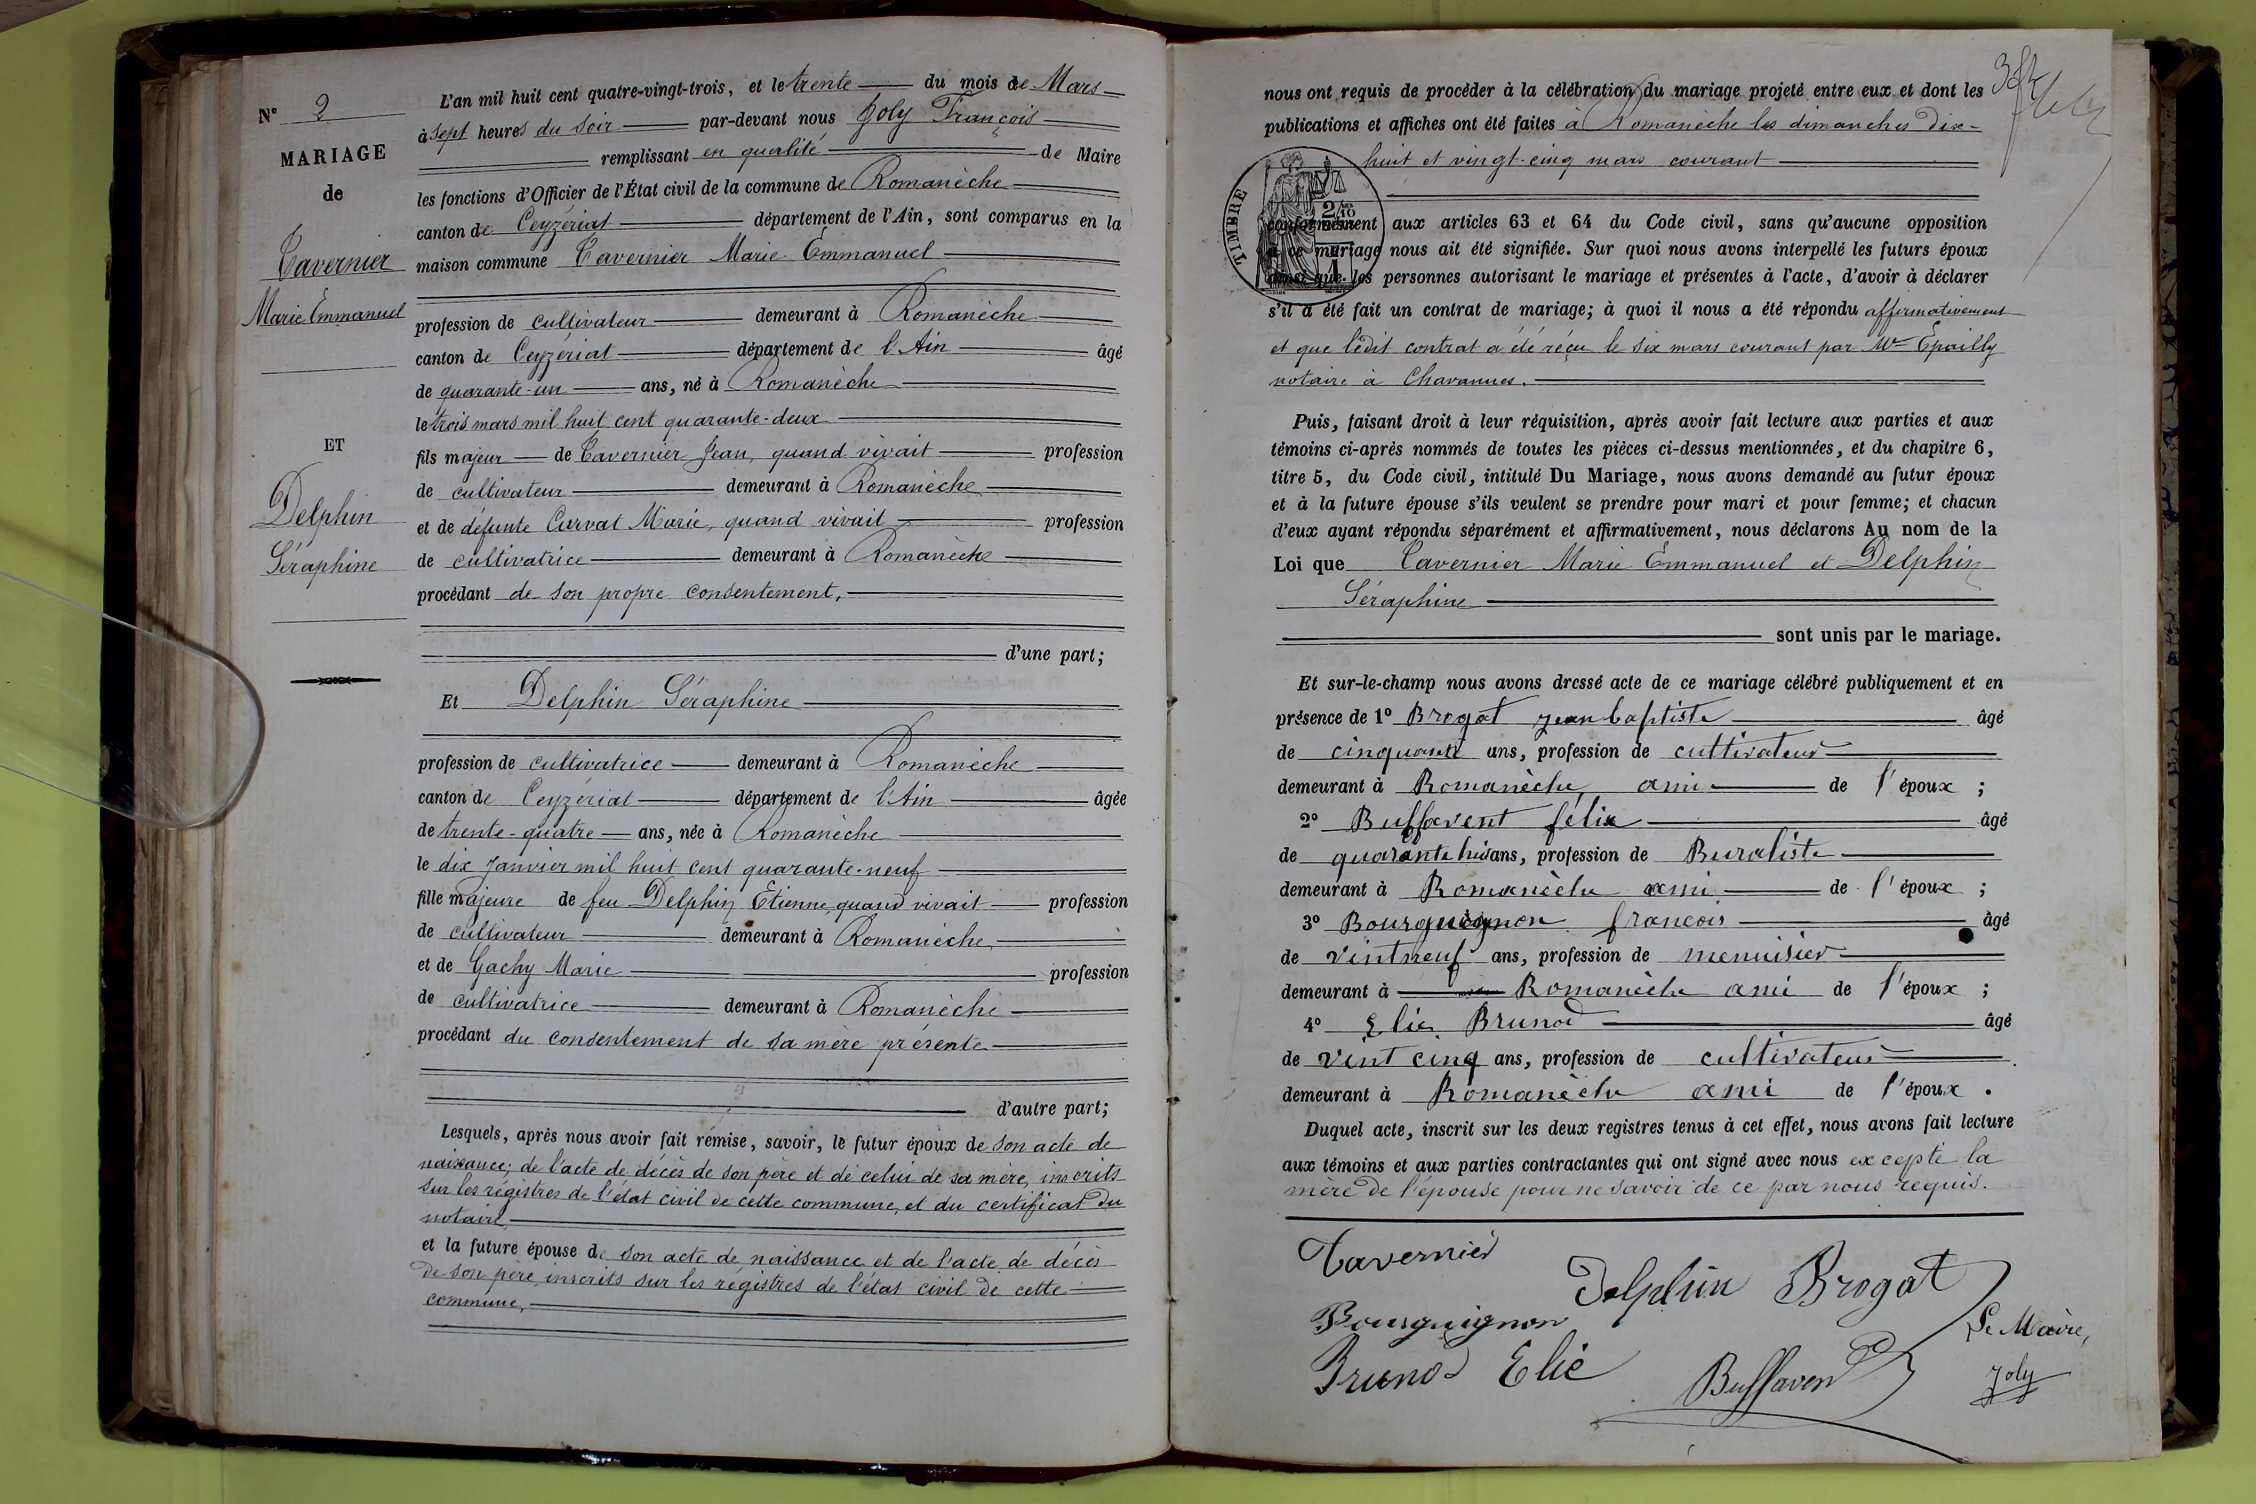 N° 2
MARIAGE
de
Tavernier
Marie Emmanuel
ET
Delphin
Séraphine
L'an mil huit cent quatre-vingt-trois, et le trente du mois de Mars
à sept heures du soir par-devant nous Joly François
remplissant en qualité de Maire
les fonctions d'Officier de l'État civil de la commune de Romanèche
canton de Ceyzériat département de l'Ain, sont comparus en la
maison commune Tavernier Marie Emmanuel
profession de cultivateur demeurant à Romanèche
canton de Ceyzériat département de l'Ain âgé
de quarante-un ans, né à Romanèche
le trois mars mil huit cent quarante-deux
fils majeur de Tavernier Jean, quand vivait profession
de cultivateur demeurant à Romanèche
et de défunte Curvat Marie, quand vivait profession
de cultivatrice demeurant à Romanèche
procédant de son propre consentement,
d'une part;
Et Delphin Séraphine
profession de cultivatrice demeurant à Romanèche
canton de Ceyzériat département de l'Ain âgée
de trente-quatre ans, née à Romanèche
le dix Janvier mil huit cent quarante-neuf
fille majeure de feu Delphin Etienne, quand vivait profession
de cultivateur demeurant à Romanèche,
et de Gachy Marie profession
de cultivatrice demeurant à Romanèche
procédant du consentement de sa mère présente
d'autre part;
Lesquels, après nous avoir fait remise, savoir, le futur époux de son acte de
naissance; de l'acte de décès de son père et de celui de sa mère, inscrits
sur les régistres de l'état civil de cette commune, et du certificat du
notaire,
et la future épouse de son acte de naissance et de l'acte de décès
de son père inscrits sur les régistres de l'état civil de cette
commune,
nous ont requis de procéder à la célébration du mariage projeté entre eux et dont les
publications et affiches ont été faites à Romanèche les dimanches dix-
huit et vingt-cinq mars courant
TIMBRE
conformément aux articles 63 et 64 du Code civil, sans qu'aucune opposition
à ce mariage nous ait été signifiée. Sur quoi nous avons interpellé les futurs époux
ainsi que les personnes autorisant le mariage et présentes à l'acte, d'avoir à déclarer
s'il a été fait un contrat de mariage; à quoi il nous a été répondu affirmativement
et que ledit contrat a été réçu le six mars courant par Me Epailly
notaire à Chavannes.
Puis, faisant droit à leur réquisition, après avoir fait lecture aux parties et aux
témoins ci-après nommés de toutes les pièces ci-dessus mentionnées, et du chapitre 6,
titre 5, du Code civil, intitulé Du Mariage, nous avons demandé au futur époux
et à la future épouse s'ils veulent se prendre pour mari et pour femme; et chacun
d'eux ayant répondu séparément et affirmativement, nous déclarons Au nom de la
Loi que Tavernier Marie Emmanuel et Delphin
Séraphine
sont unis par le mariage.
Et sur-le-champ nous avons dressé acte de ce mariage célébré publiquement et en
présence de 1° Brogat jean baptiste âgé
de cinquante ans, profession de cultivateur
demeurant à Romanèche, ami de l'époux ;
2° Buffavent félix âgé
de quarante huit ans, profession de Buraliste
demeurant à Romanèche ami de l'époux ;
3° Bourguignon francois âgé
de vintneuf ans, profession de menuisier
demeurant à Romanèche ami de l'époux ;
4° Elie Brunod âgé
de vint cinq ans, profession de cultivateur
demeurant à Romanèche ami de l'époux .
Duquel acte, inscrit sur les deux registres tenus à cet effet, nous avons fait lecture
aux témoins et aux parties contractantes qui ont signé avec nous excepté la
mère de l'épouse pour ne savoir de ce par nous requis.
Tavernier
Delphin Brogat
Bourguignon
Le Maire,
Brunod Elie Buffavent
Joly